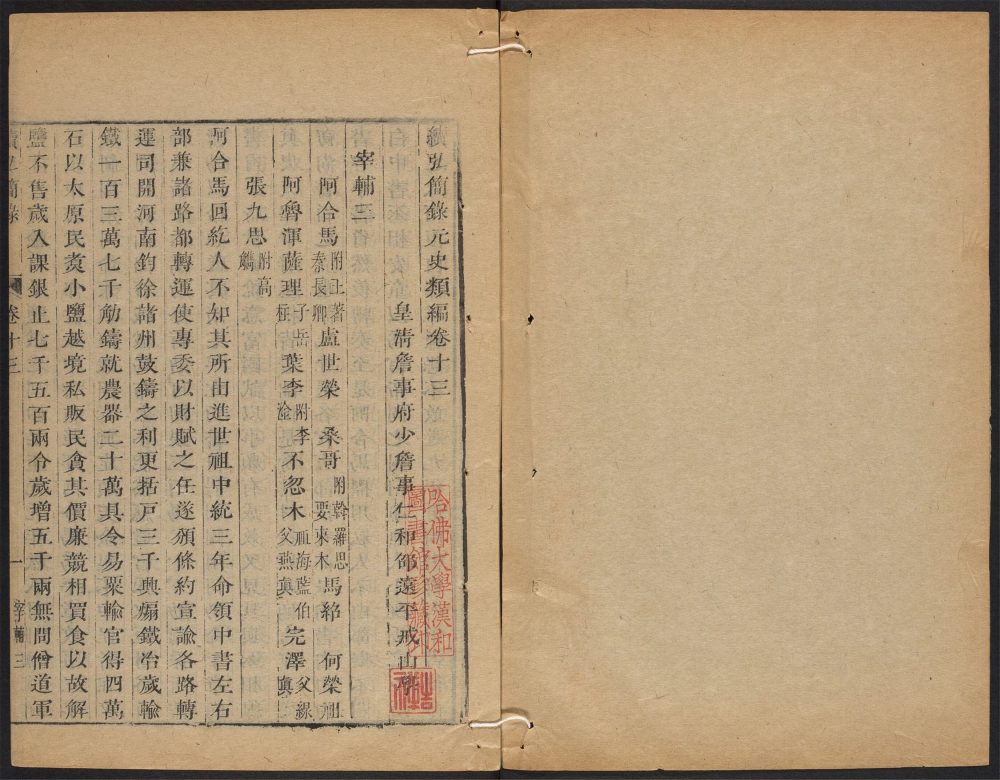 續弘簡錄元史類編卷十三
皇清詹事府少詹事仁和邵遠平戒山學
宰輔三
阿合馬 附王著 秦長卿 盧世榮 桑哥 附斡羅思 要束木 馬紹 何榮祖
阿魯渾薩理 子岳柱 葉李 附李淦 不忽木 祖海藍伯 父燕真 完澤 父線真
張九思 附高觿
阿合馬回紇人不知其所由進世祖中統三年命領中書左右
部兼諸路都轉運使專委以財賦之任遂頒條約宣諭各路轉
運司開河南鈞徐諸州鼓鑄之利更括戸三千興煽鐵冶歲輸
鐵一百三萬七千觔鑄就農器二十萬具令易粟輸官得四萬
石以太原民煑小鹽越境私販民貪其價廉競相買食以故解
鹽不售歲入課銀止七千五百兩令歲增五千兩無問僧道軍
續弘簡錄 卷十三 一 宰輔三
哈佛大學漢和
圖書館珍藏印